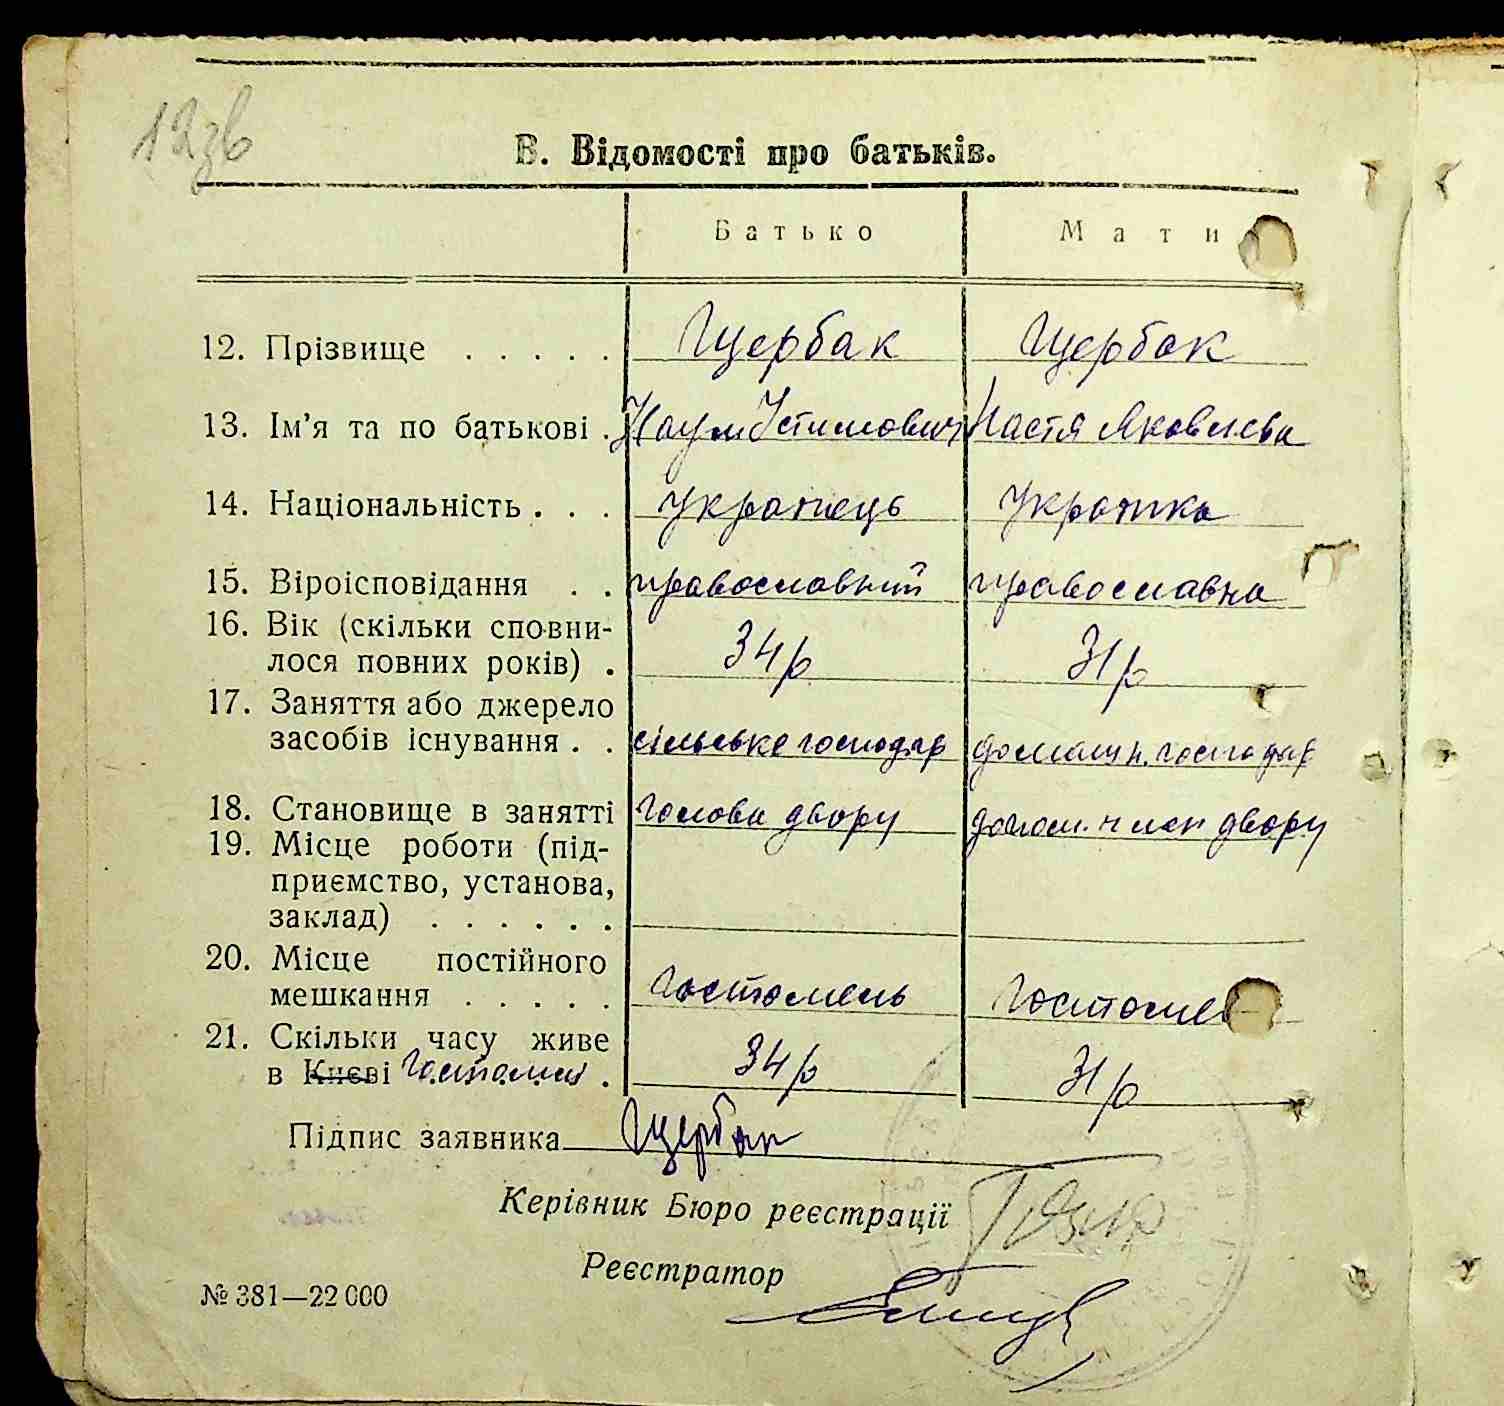 12зв
В. Відомості про батьків.
Батько Мати
12. Прізвище . . . . . Щербак Щербак
13. Ім'я та по батькові . Наум Устимович Настя Яковлева
14. Національність . . . Українець Українка
15. Віроісповідання . . православний православна
16. Вік (скільки сповни-
лося повних років) . 34 р 31 р
17. Заняття або джерело
засобів існування . . сільське господар домашн. господар
18. Становище в занятті голова двору допом. член двору
19. Місце роботи (під-
приємство, установа,
заклад) . . . . . .
20. Місце постійного
мешкання . . . . . Гостомель Гостомел
21. Скільки часу живе
в Києві Гостомлі . 34 р 31 р
Підпис заявника Щербак
Керівник Бюро реєстрації
Реєстратор
№ 381—22 000